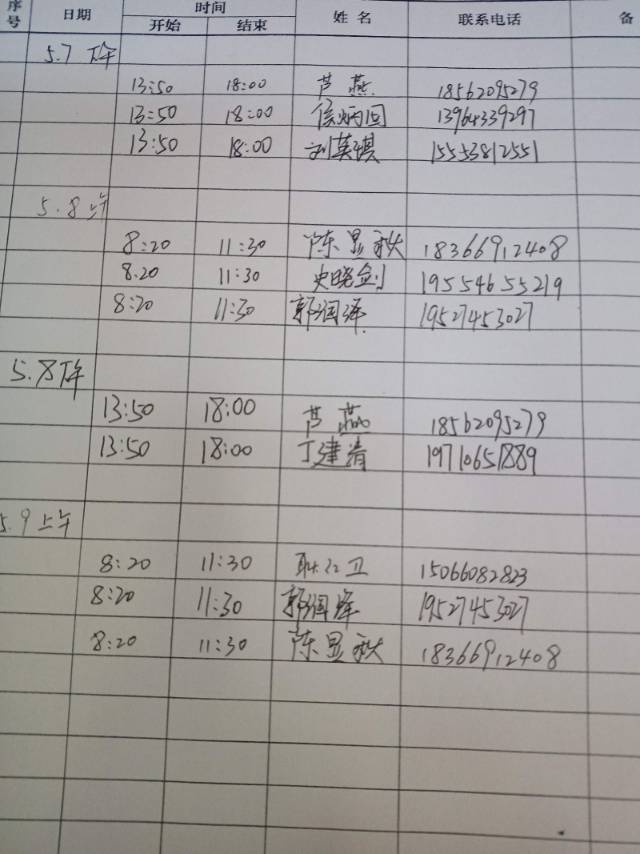 序号 日期 时间 姓名 联系电话 备
开始 结束
5.7 下午
13:50 18:00 芦燕 18562095279
13:50 18:00 侯炳回 13964339297
13:50 18:00 刘英祺 15553812551
5.8 上午
8:20 11:30 陈显秋 18366912408
8.20 11:30 史晓剑 19554655219
8:20 11:30 郭润泽 19527453027
5.8 下午
13:50 18:00 芦燕 18562095279
13:50 18:00 丁建清 19710651889
5.9 上午
8:20 11:30 耿江卫 15066082823
8:20 11:30 郭润泽 19527453027
8:20 11:30 陈显秋 18366912408